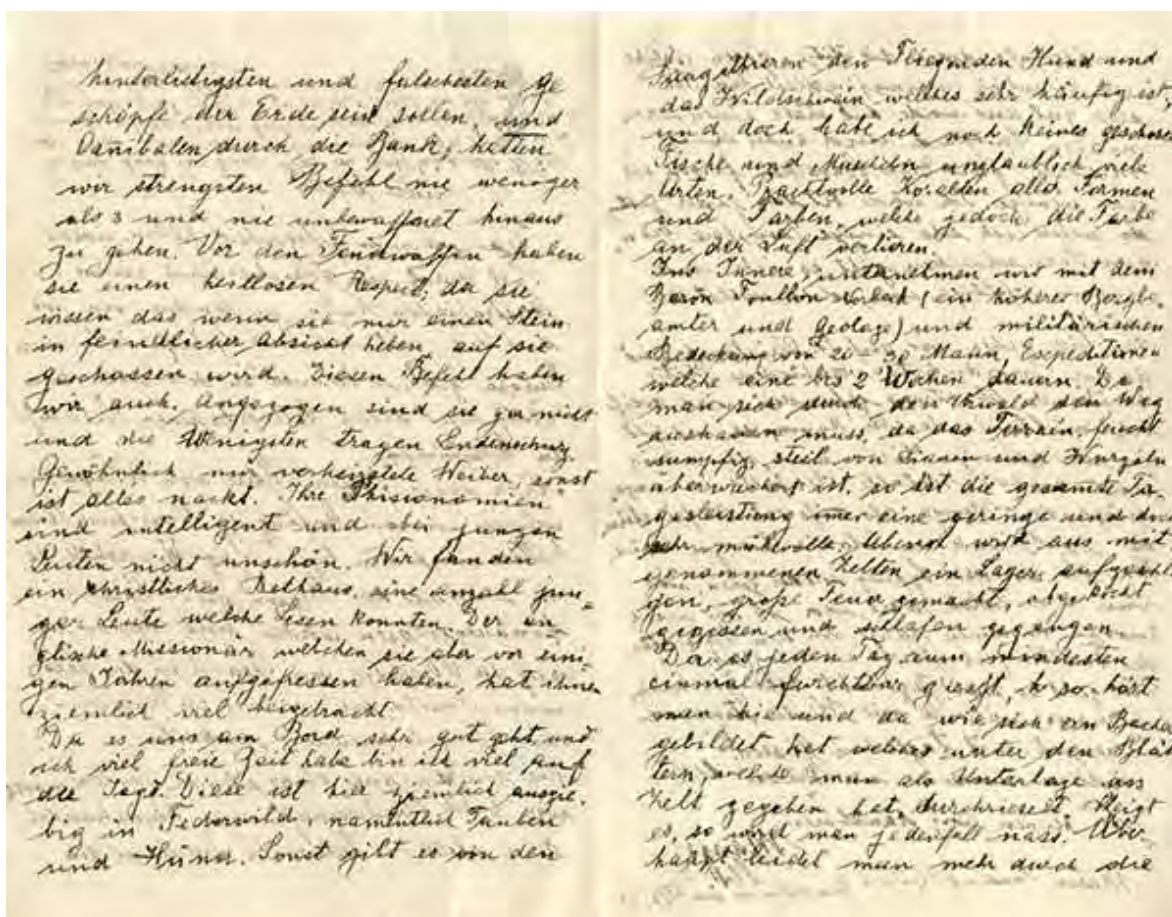 hinterlistigsten und falschesten Ge
schöpfe der Erde sein sollen, und
Canibalen durch die Bank, hatten
wir strengsten Befehl nie weniger
als 3 und nie unbewaffnet hinaus
zu gehen. Vor den Feuerwaffen haben
sie einen heillosen Respect, da sie
wissen das wenn sie nur einen Stein
in feindlicher Absicht heben, auf sie
geschossen wird. Diesen Befehl haben
wir auch. Angezogen sind sie gar nicht
und die Wenigsten tragen Lendenschurz
Gewöhnlich nur verheiratete Weiber, sonst
ist alles nackt. Ihre Phisionomien
sind intelligent und bei jungen
Leuten nicht unschön. Wir fanden
ein christliches Bethaus, eine anzahl jun=
ger Leute welche Lesen konnten. Der en
glische Missionär welchen sie aber vor eini
gen Jahren aufgefressen haben, hat ihnen
ziemlich viel beigebracht
Da es uns am Bord sehr gut geht, und
ich viel freie Zeit habe bin ich viel auf
der Jagd. Diese ist hier ziemlich ausgie.
big in Federwild, namentlich Tauben
und Hüner. Sonst gibt es von den
den Fliegenden Hund und
das Wildschwein, welches sehr häufig ist,
und doch habe ich noch keines geschossen
Fische und Muscheln unglaublich viele
Arten. Prachtvolle Korallen aller Formen
und Farben, welche jedoch die Farbe
an der Luft verlieren.
Ins Innere unternehmen wir mit dem
Baron Foullon Norbeck (ein höherer Bergbe.
amter und Geologe) und militärischen
Bedeckung von 20-30 Mann, Expeditionen
welche eine bis 2 Wochen dauern. Da
man sich durch den Urwald den Weg
aushauen muss, da das Terrain, feucht
sumpfig, steil von Lianen und Wurzeln
überwuchert ist, so ist die gesamte Ta.
gesleistung imer eine geringe und doch
sehr mühevolle. Abend wird aus mit
genommenen Zelten ein Lager aufgeschl
gen, große Feuer gemacht, abgekocht
gegessen und schlafen gegangen.
Da es jeden Tag zum mindesten
einmal furchtbar giesst, so hört
man hie und da wie sich ein Bacherl
gebildet hat welches unter den Blät
tern, welche man als Unterlage ans
Zelt gegeben hat, durchrieselt. Steigt
es, so wird man jedenfalls nass. Über
haupt leidet man mehr durch die